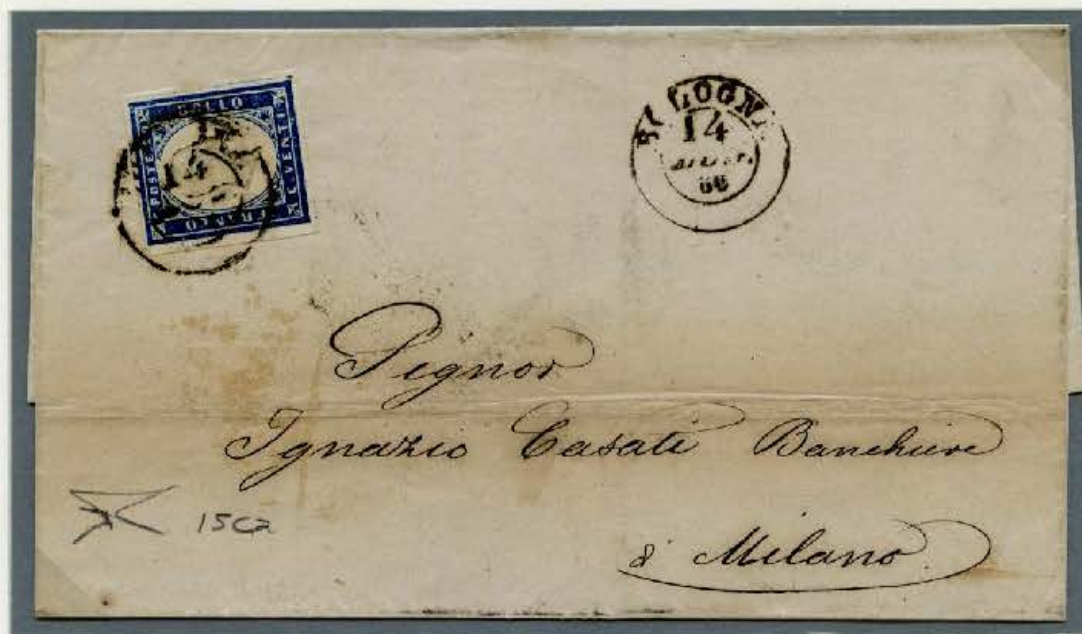 BOLLO
POSTE
C. VENTI
FRANCO
14
BOLOGNA
14
60
Signor
Ignazio Casati Banchiere
a Milano
15C2